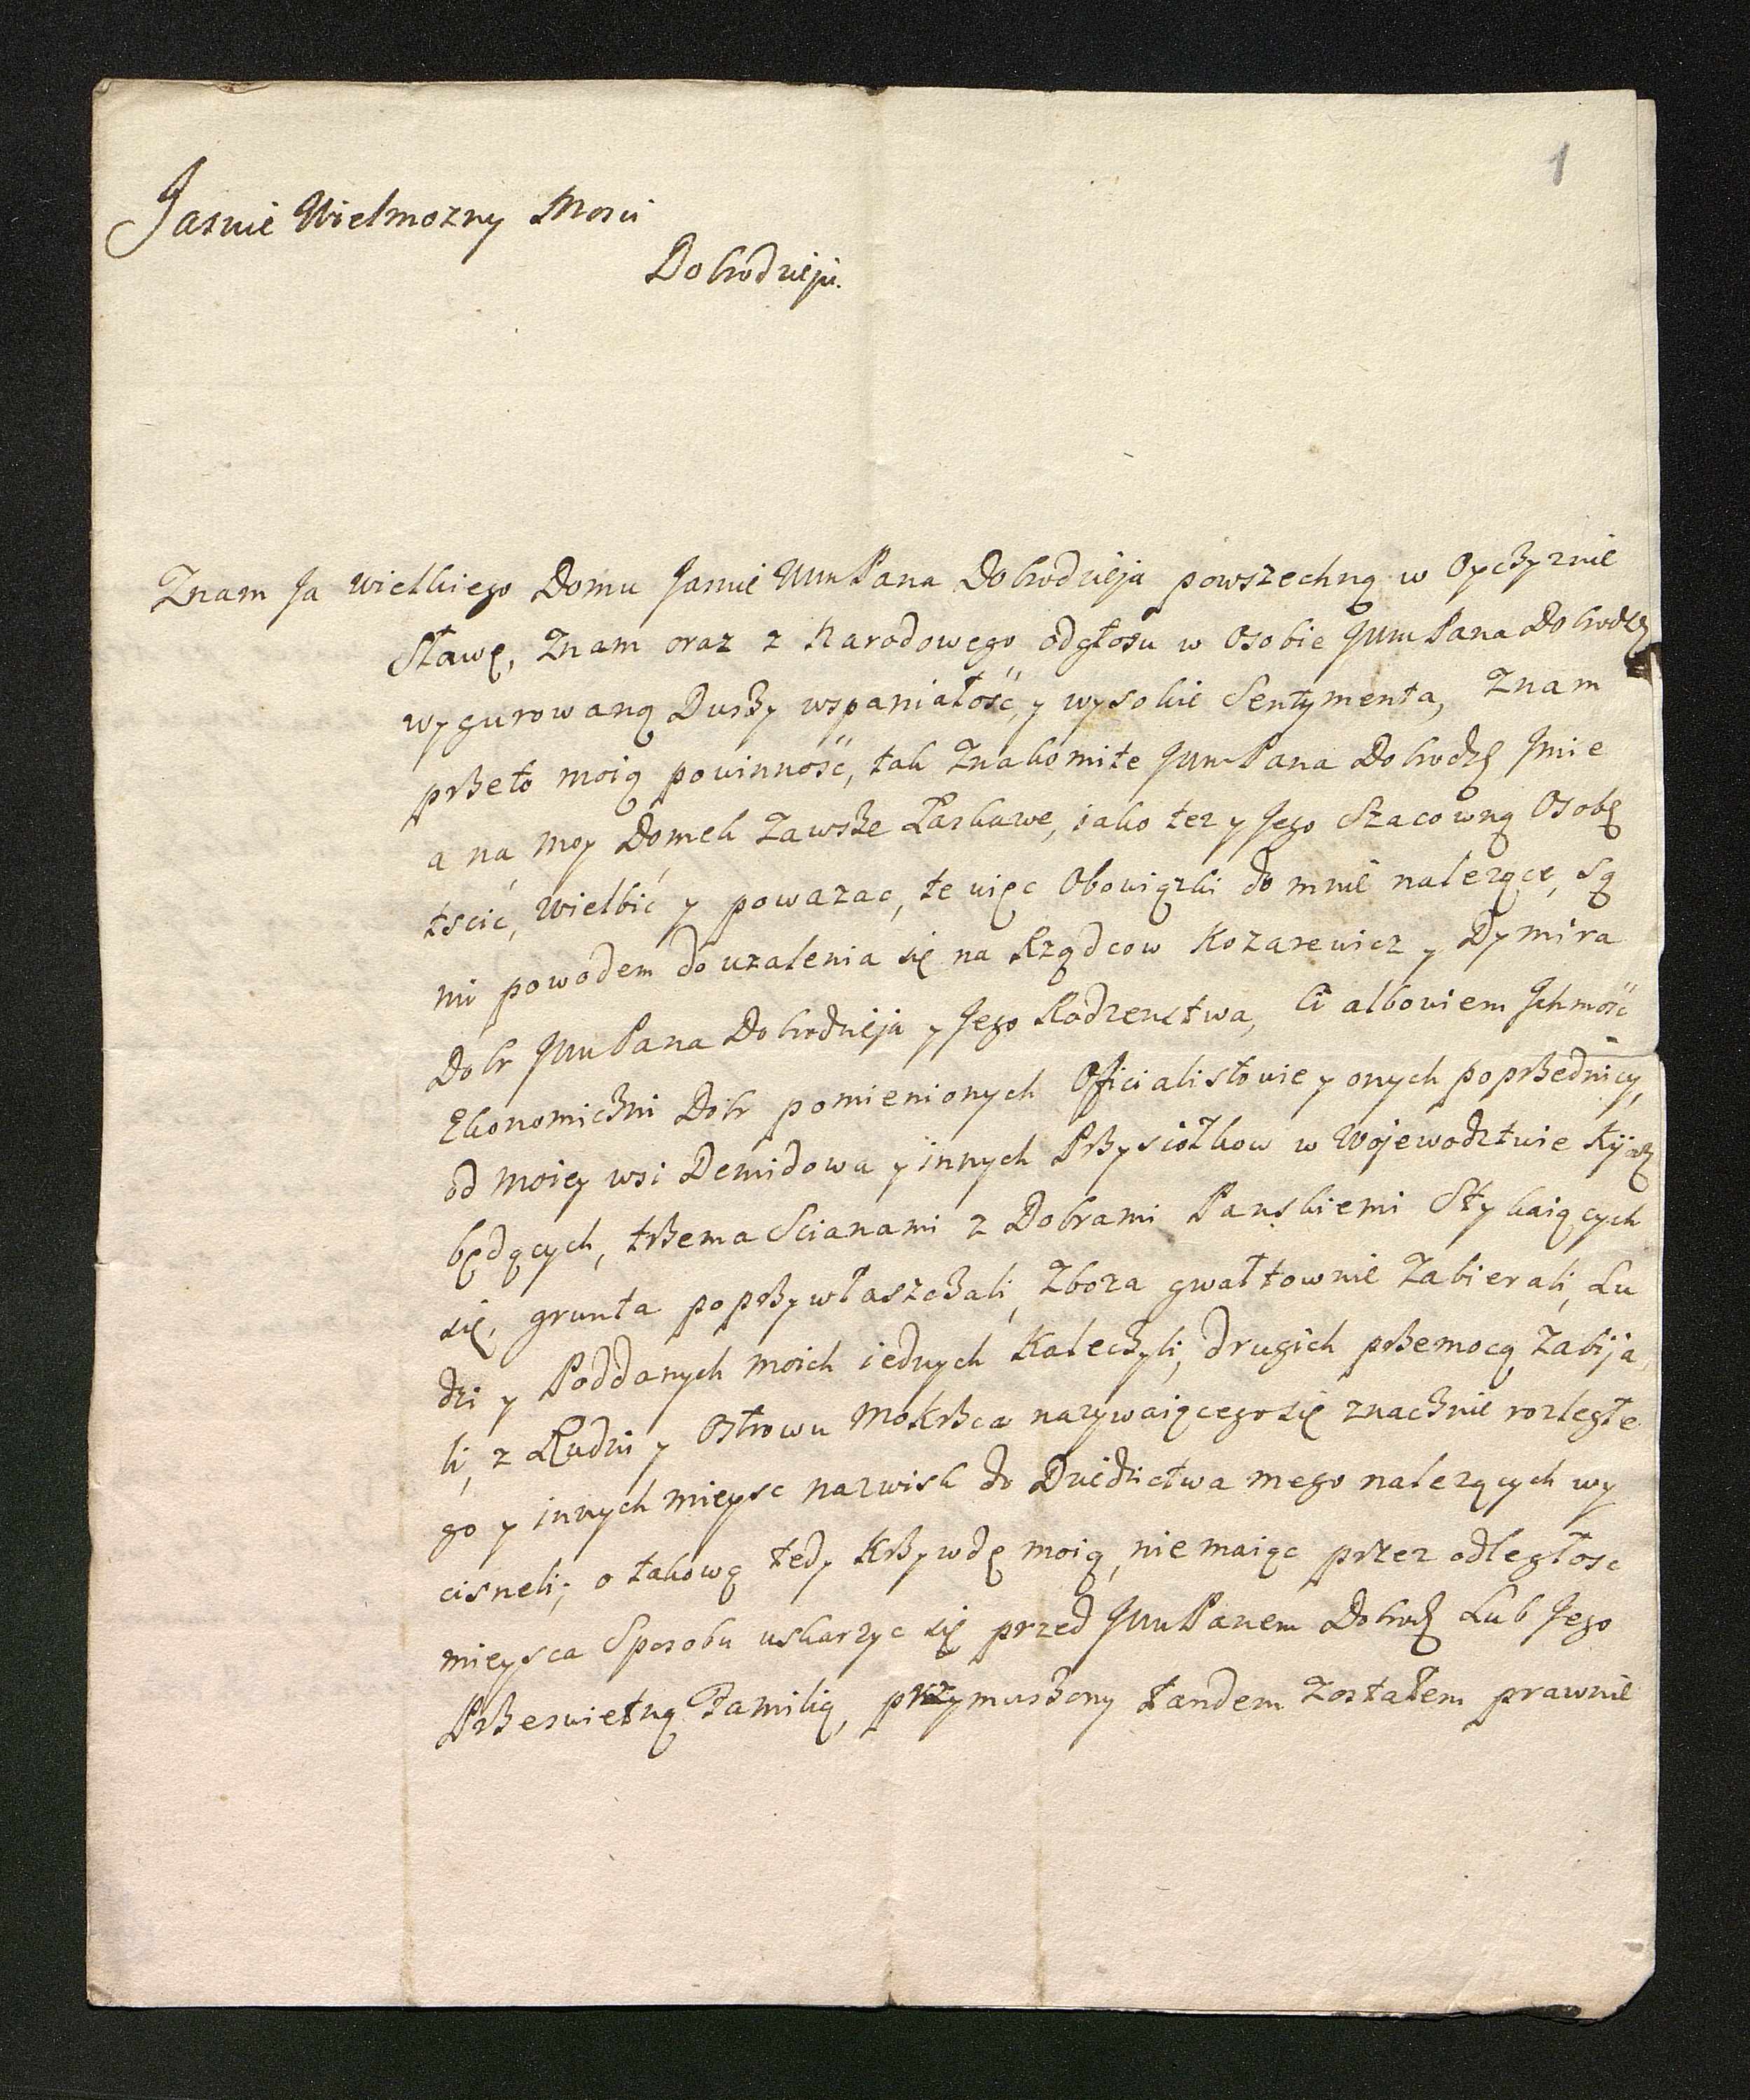 1
Jasnie Wielmozny Mosci
Dobrodzieju.
Znam Ja wielkiego Domu Jasnie WmPana Dobrodzieja powszechną w Oyczyznie
Sławę, Znam oraz z Narodowego odgłosu w Osobie JWmPana Dobrodz
wygurowaną Duszy wspaniałość, y wysokie Sentymenta, Znam
przeto moią powinność, tak Znakomite JWmPana Dobrodz Jmie
a na moy Domek Zawsze Łaskawe, iako tez y Jego Szacowną Osobę
tscić, Wielbić y powazac, te więc Obowiązki do mnie nalezące, są
mi powodem do uzalenia się na Rządcow Kozarewicz y Dymira
Dobr JWmPana Dobrodzieja y Jego Rodzenstwa, Ci albowiem Ichmość
Ekonomiczni Dobr pomienionych Officialistowie y onych poprzednicy,
od moiey wsi Demidowa y innych Przysiołkow w Wojewodztwie Kijow
będących, trzema Scianami z Dobrami Panskiemi Stykaiących
się, grunta poprzywłaszczali, Zboza gwałtownie Zabierali, Lu
dzi y Poddanych moich iednych Kaleczyli, drugich przemocą Zabija
li, z Rudni y Ostrowu Mokrzca nazywaiącego się znacznie rozległe
go y innych mieysc nazwisk do Dziedzictwa mego nalezących wy
cisneli; o takową tedy Krzywdę moią, nie maiąc przez odległosc
mieysca Sposobu uskarzyc się przed JWmPanem Dobrodz Lub Jego
Przeswietną Familią, przymuszony tandem Zostałem prawnie